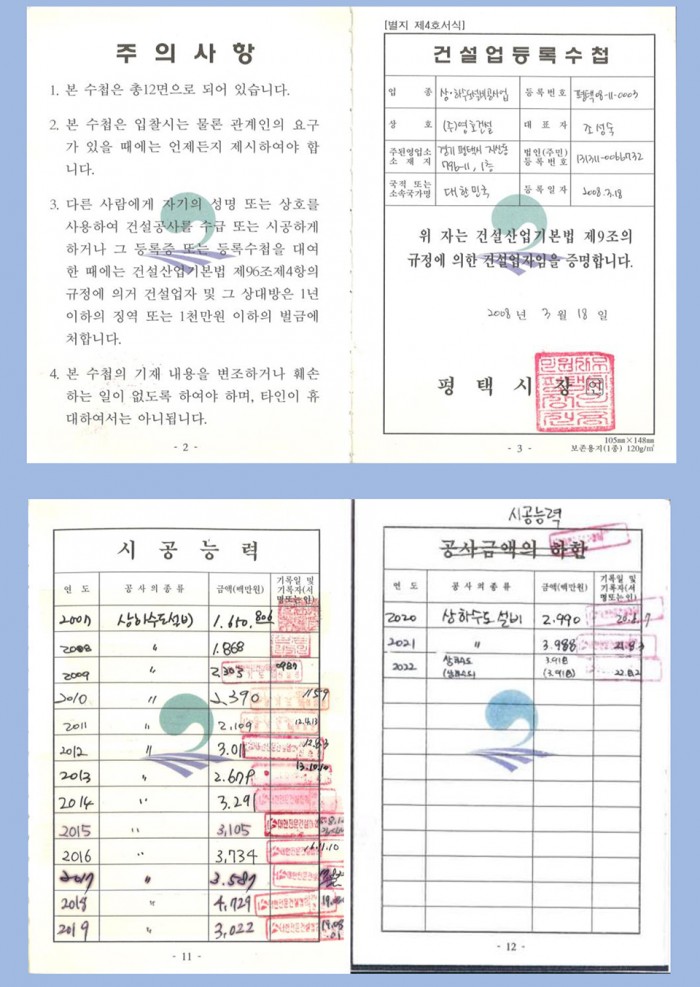 주의사항
1. 본 수첩은 총12면으로 되어 있습니다.
2. 본 수첩은 입찰시는 물론 관계인의 요구
가 있을 때에는 언제든지 제시하여야 합
니다.
3. 다른 사람에게 자기의 성명 또는 상호를
사용하여 건설공사를 수급 또는 시공하게
하거나 그 등록증 또는 등록수첩을 대여
한 때에는 건설산업기본법 제96조제4항의
규정에 의거 건설업자 및 그 상대방은 1년
이하의 징역 또는 1천만원 이하의 벌금에
처합니다.
4. 본 수첩의 기재 내용을 변조하거나 훼손
하는 일이 없도록 하여야 하며, 타인이 휴
대하여서는 아니됩니다.
- 2 -
[별지 제4호서식]
건설업등록수첩
업 종 상·하수도설비공사업 등록번호 평택08-11-0003
상 호 (주)영호건설 대표자 조성숙
주된영업소 소재지 경기 평택시 지산동 796-11, 1층 법인(주민)등록번호 131311-0066732
국적 또는 소속국가명 대한민국 등록일자 2008.3.18
위 자는 건설산업기본법 제9조의
규정에 의한 건설업자임을 증명합니다.
2008년 3월 18일
평택시장 인
- 3 -
105㎜×148㎜
보존용지(1종) 120g/㎡
시공능력
연 도 공사의종류 금액(백만원) 기록일 및 기록자(서명또는인)
2007 상하수도설비 1.650.806
2008 〃 1.868
2009 〃 2.305 0987
2010 〃 2,390
2011 〃 2,109 12.4.13
2012 〃 3.011 12.8.3
2013 〃 2.679 13.10.10
2014 〃 3.291
2015 〃 3,105
2016 〃 3,734
2017 〃 3.587
2018 〃 4,729
2019 〃 3,022 19.08.01
- 11 -
시공능력
공사금액의 하한
연 도 공사의종류 금액(백만원) 기록일 및 기록자(서명또는인)
2020 상하수도설비 2.990
2021 〃 3.988
2022 상하수도 (상하수도) 3.918 (3.918)
- 12 -